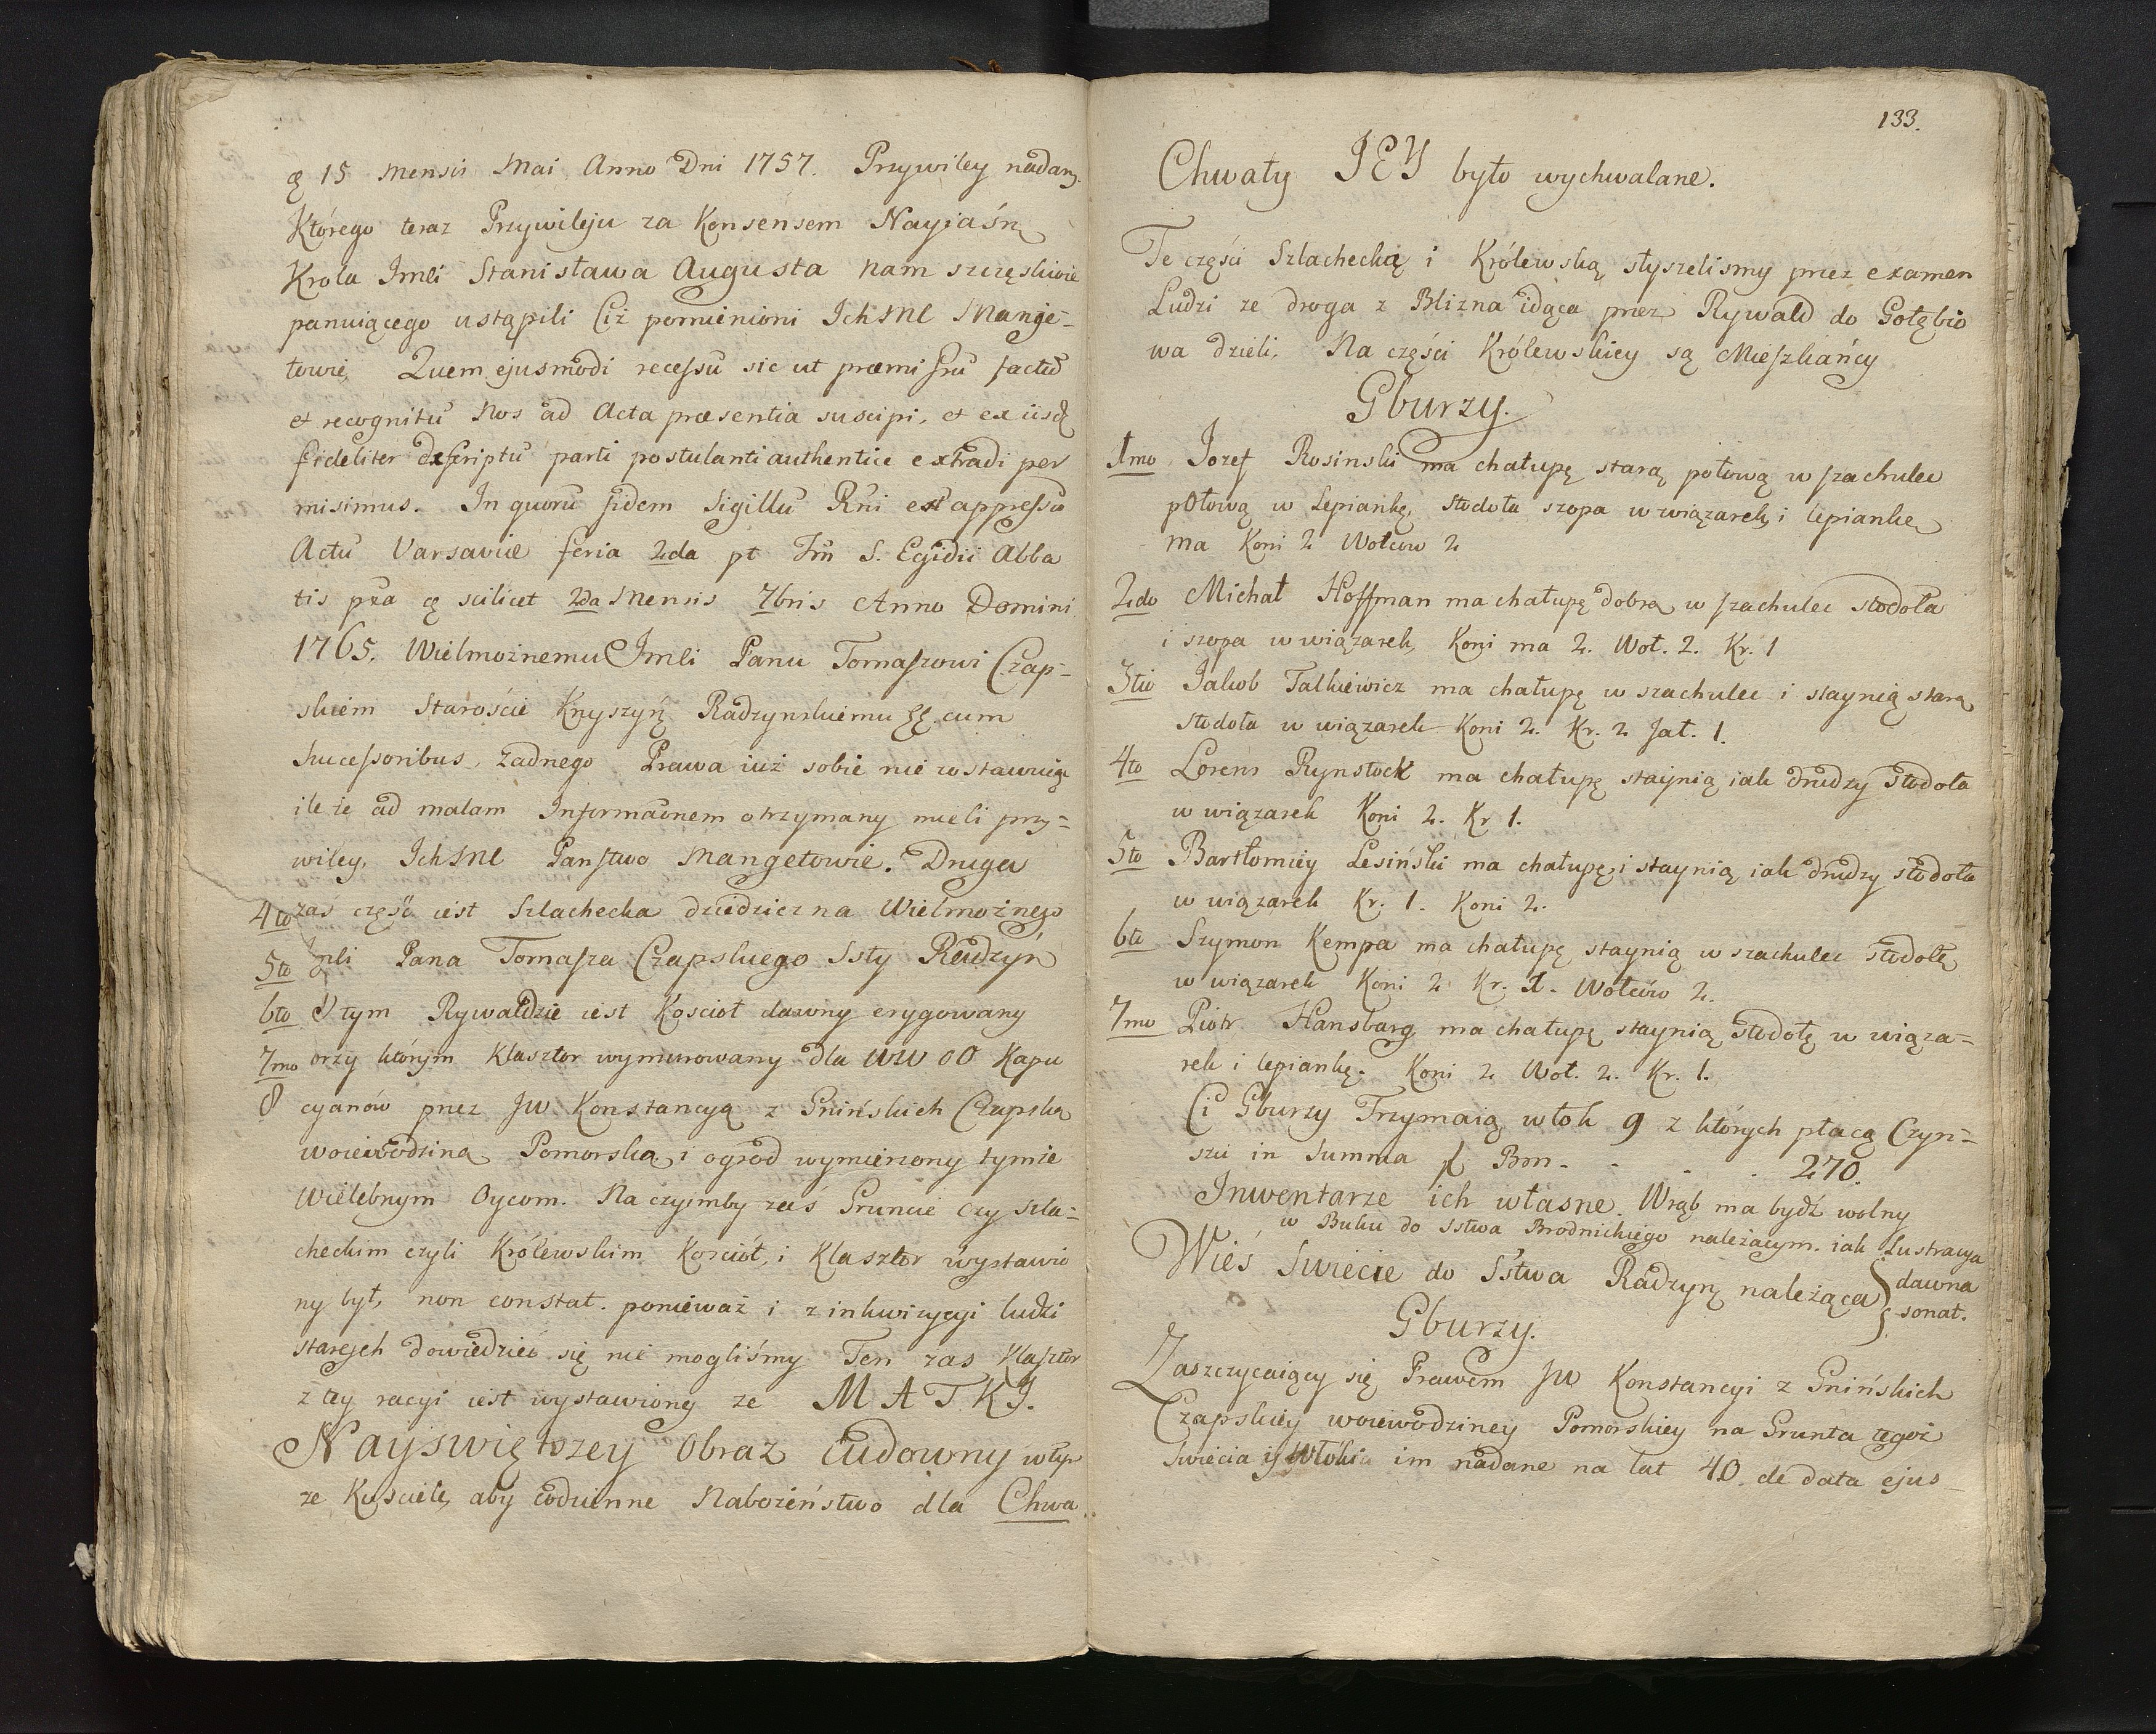 ę 15 Mensis Mai Anno Dni 1757. Przywiley nadany.
Którego teraz Przywileju za Konsensem Nayiaśn
Krola Jmći Stanisława Augusta nam szczęsliwie
panuiącego ustąpili Ciż pomienioni Ich Mć Mange-
towie, Quem ejusmodi recessū sic ut præmissū factū
et recognitū Nos ad Acta præsentia suscipi, et ex iisdē
fideliter descriptū parti postulanti authentice extradi per
misimus. In quorū fidem Sigillū Rńi est appressū
Actū Varsaviæ feria 2da pt Frū S. Egidii Abba
tis pxa ę scilicet 2da Mensis 7bris Anno Domini
1765. Wielmożnemu Jmći Panu Tomaszowi Czap-
skiem Staroście Knyszyń Radzynskiemu cum
Sucessoribus, Zadnego Prawa iuż sobie nie zostawuiąc
ile że ad malam Informaōnem otrzymany mieli przy=
wiley, Ich Mć Panstwo Mangetowie. Druga
4to zaś część iest Szlachecka dziedziczna Wielmożnego
5to Jmći Pana Tomasza Czapskiego Ssty Radzyń
6to W tym Rywałdzie iest Koscioł dawny erygowany
7mo przy którym Klasztor wymurowany dla WW OO Kapu
8 cyanów przez JW Konstancyą z Gnińskich Czapską
woiewodzina Pomorską i ogrod wymierzony tymże
Wielebnym Oycom. Na czyimby zaś Gruncie czy szla=
checkim czyli Królewskim Kosciół, i Klasztor wystawio
ny był, non constat. ponieważ i z inkwizycyi ludzi
starych dowiedzieć się nie mogliśmy Ten zas Klasztor
z tey racyi iest wystawiony ze MATKI.
Nayswiętszey Obraz Cudowny w tym
ze Kosciele, aby codzienne Nabożeństwo dla Chwa
133.
Chwały JEY było wychwalane.
Te części Szlachecką i Królewską słyszelismy przez examen
Ludzi ze droga z Blizna idąca przez Rywałd do Gołębio
wa dzieli, Na części Królewskiey są Mieszkańcy
Gburzy.
1mo Jozef Rosinski ma chałupę starą połową w szachulec
połową w Lepiankę, Stodoła szopa w wiązarek, i lepiankę
ma Koni 2 Wołcow 2
2do Michał Hoffman ma chałupę dobrą w szachulec stodoła
i szopa w wiązarek, Koni ma 2. Woł. 2. Kr. 1
3tio Jakob Falkiewicz ma chałupę w szachulec i staynią starą
stodoła w wiązarek Koni 2. Kr. 2 Jał. 1.
4to Lorens Rynstock ma chałupę staynią iak drudzy stodoła
w wiązarek Koni 2. Kr 1.
5to Bartłomiey Lesiński ma chałupę i staynią iak drudzy stodoła
w wiązarek Kr. 1. Koni 2.
6to Szymon Kempa ma chałupę staynią w szachulec stodołę
w wiązarek Koni 2 Kr. 1. Wołców 2.
7mo Piotr Hansbarg ma chałupę staynią stodołę w wiąza=
rek i lepiankę. Koni 2 Woł. 2. Kr. 1.
Ci Gburzy Trzymaią włok 9 z których płacą Czyn=
szu in Summa fl Bon. - - - 270.
Inwentarze ich własne. Wrąb ma bydź wolny
w Buku do Sstwa Brodnickiego należącym. iak Lustracya
dawna
sonat.
Wieś Swiecie do Sstwa Radzyń należąca
Gburzy.
Zaszczycaiący się Prawem JW Konstancyi z Gnińskich
Czapskiey woiewodziney Pomorskiey na Grunta tegoż
Swiecia i Włoki im nadane na lat 40. de data ejus